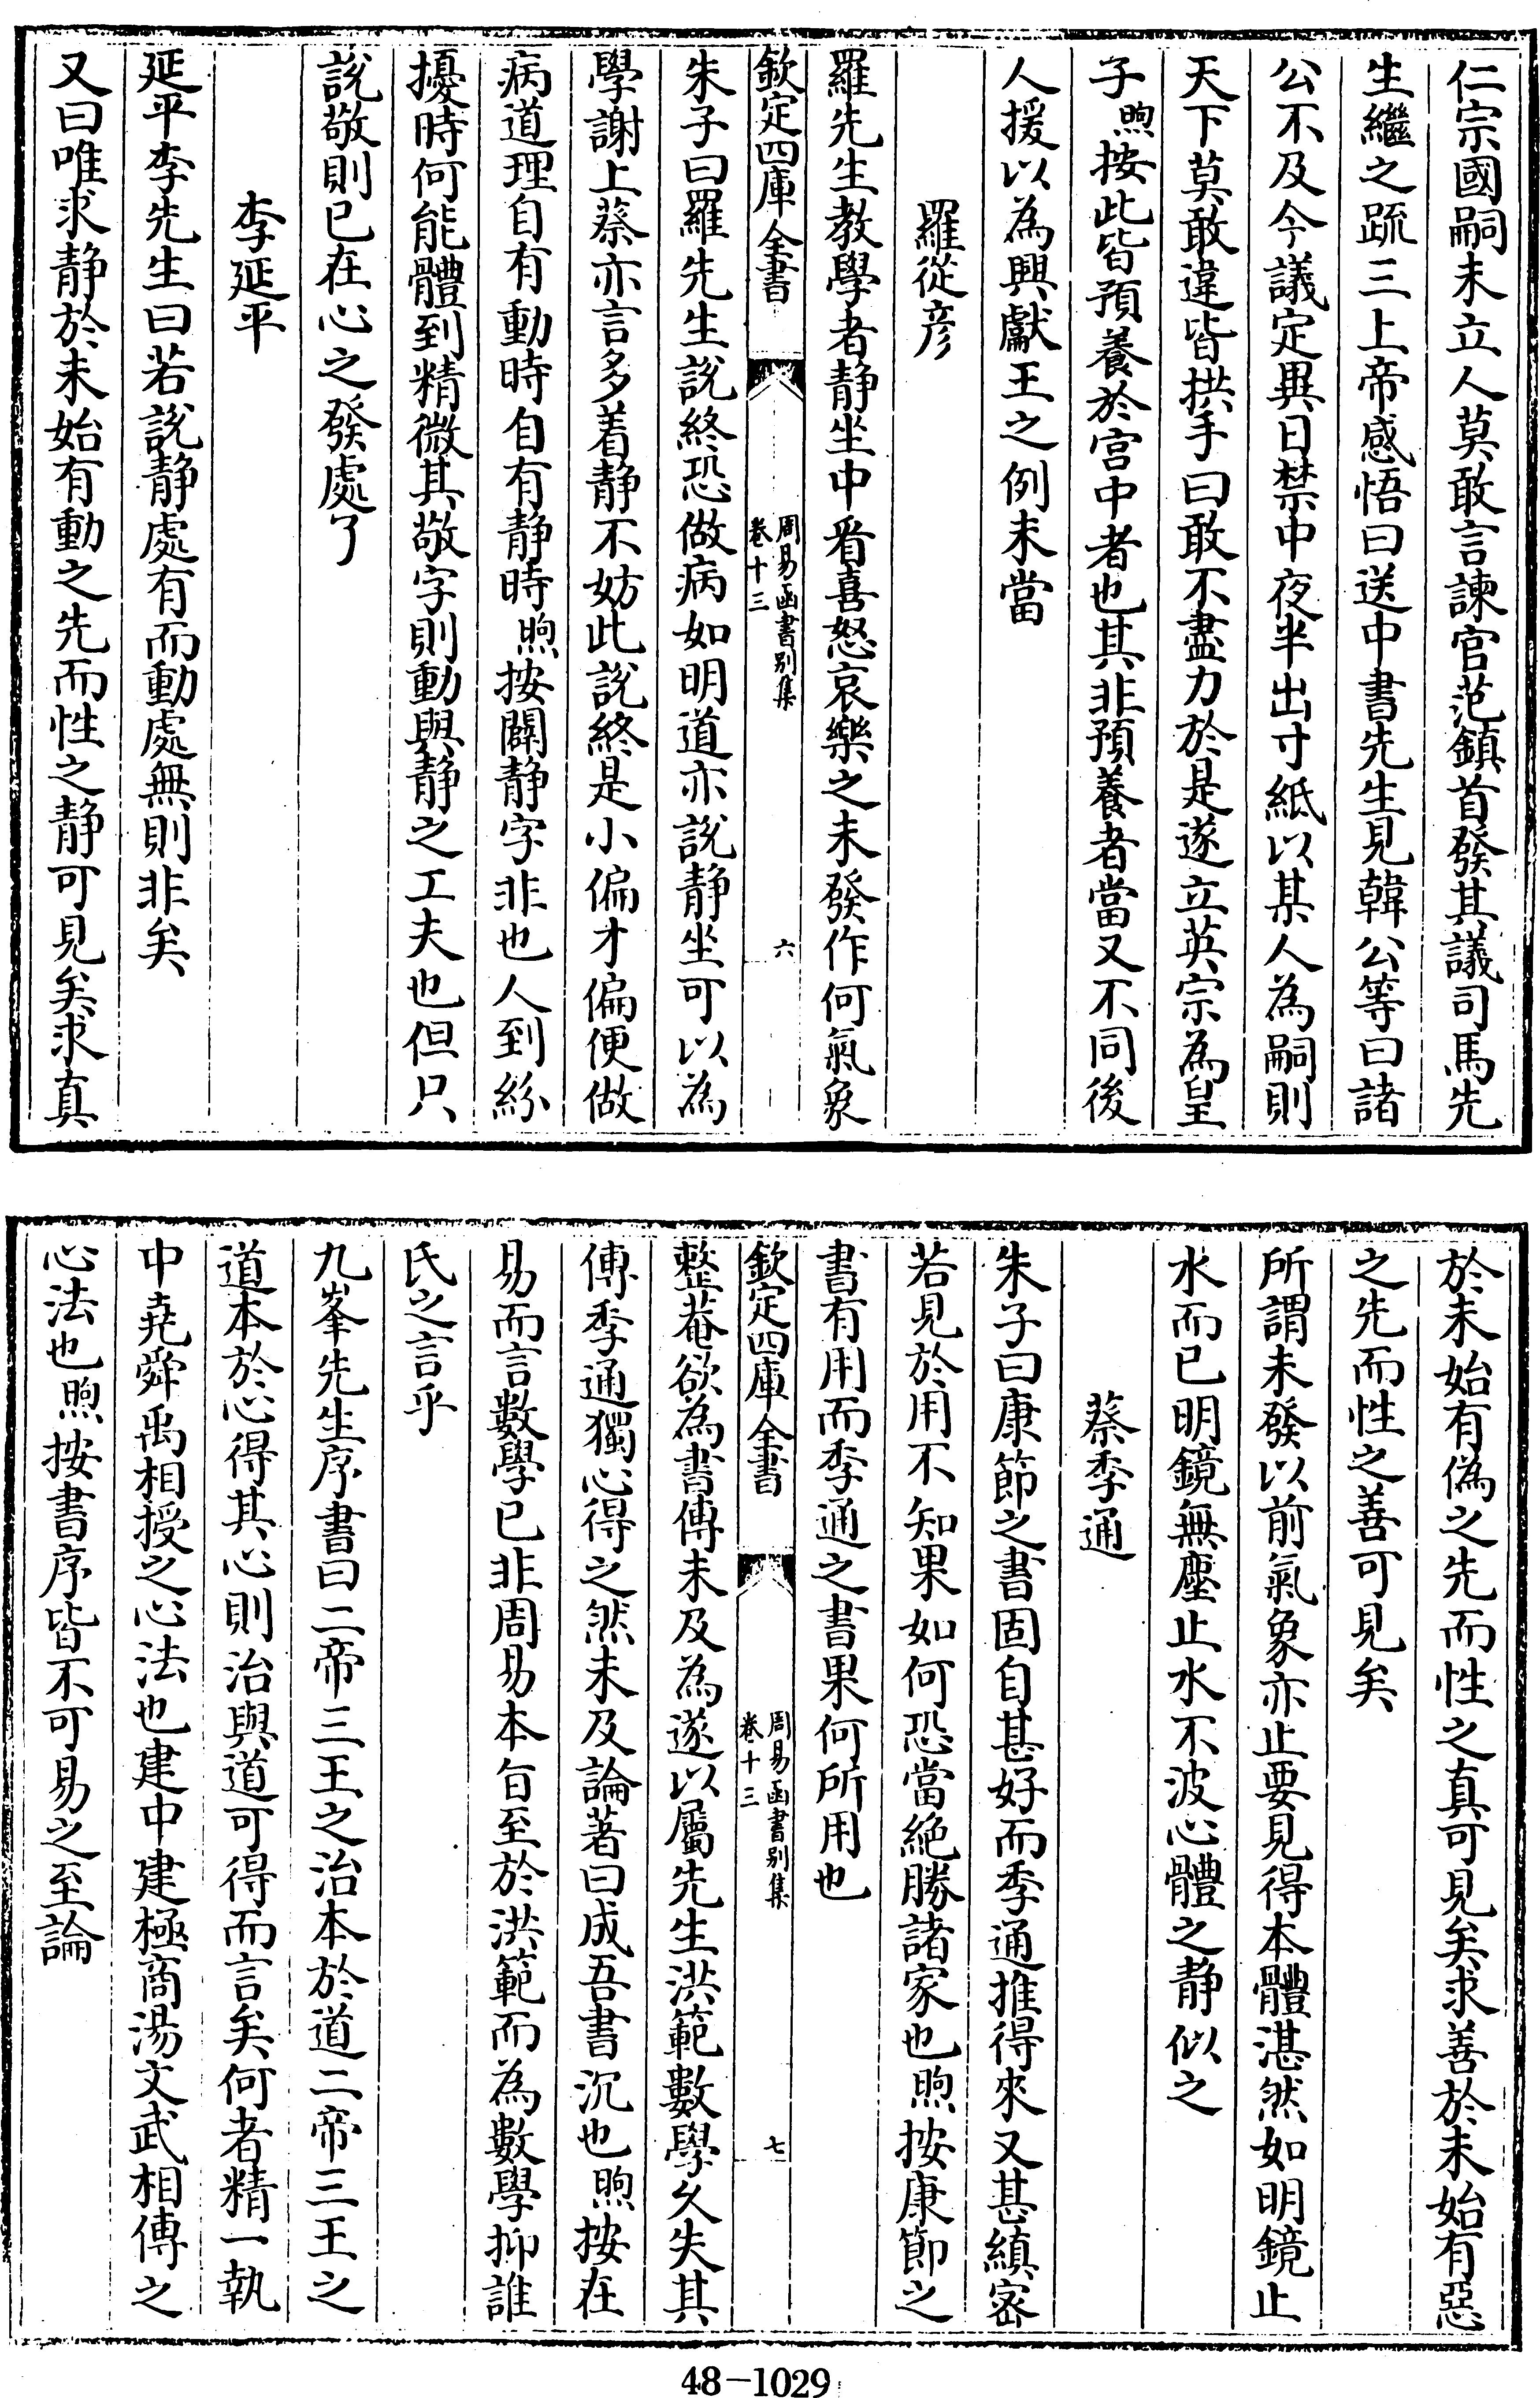 仁宗國嗣未立人莫敢言諫官范鎮首發其議司馬先
生繼之疏三上帝感悟曰送中書先生見韓公等曰諸
公不及今議定異日禁中夜半出寸紙以某人為嗣則
天下莫敢違皆拱手曰敢不盡力於是遂立英宗為皇
子煦按此皆預養於宫中者也其非預養者當又不同後
人援以為興獻王之例未當
羅從彦
羅先生教學者静坐中㸔喜怒哀樂之未發作何氣象
欽定四庫全書
周易函書别集
卷十三
六
朱子曰羅先生說終恐做病如明道亦說静坐可以為
學謝上蔡亦言多着静不妨此說終是小偏才偏便做
病道理自有動時自有静時煦按闢静字非也人到紛
擾時何能體到精微其敬字則動與静之工夫也但只
說敬則已在心之發處了
李延平
延平李先生曰若說静處有而動處無則非矣
又曰唯求静於未始有動之先而性之静可見矣求真
於未始有偽之先而性之真可見矣求善於未始有惡
之先而性之善可見矣
所謂未發以前氣象亦止要見得本體湛然如明鏡止
水而已明鏡無塵止水不波心體之静似之
蔡季通
朱子曰康節之書固自甚好而季通推得來又甚縝宻
若見於用不知果如何恐當絶勝諸家也煦按康節之
書有用而季通之書果何所用也
欽定四庫全書
周易函書别集
卷十三
七
整菴欲為書傳未及為遂以屬先生洪範數學久失其
傳季通獨心得之然未及論著曰成吾書沉也煦按在
易而言數學已非周易本旨至於洪範而為數學抑誰
氏之言乎
九峯先生序書曰二帝三王之治本於道二帝三王之
道本於心得其心則治與道可得而言矣何者精一執
中堯舜禹相授之心法也建中建極商湯文武相傳之
心法也煦按書序皆不可易之至論
48-1029